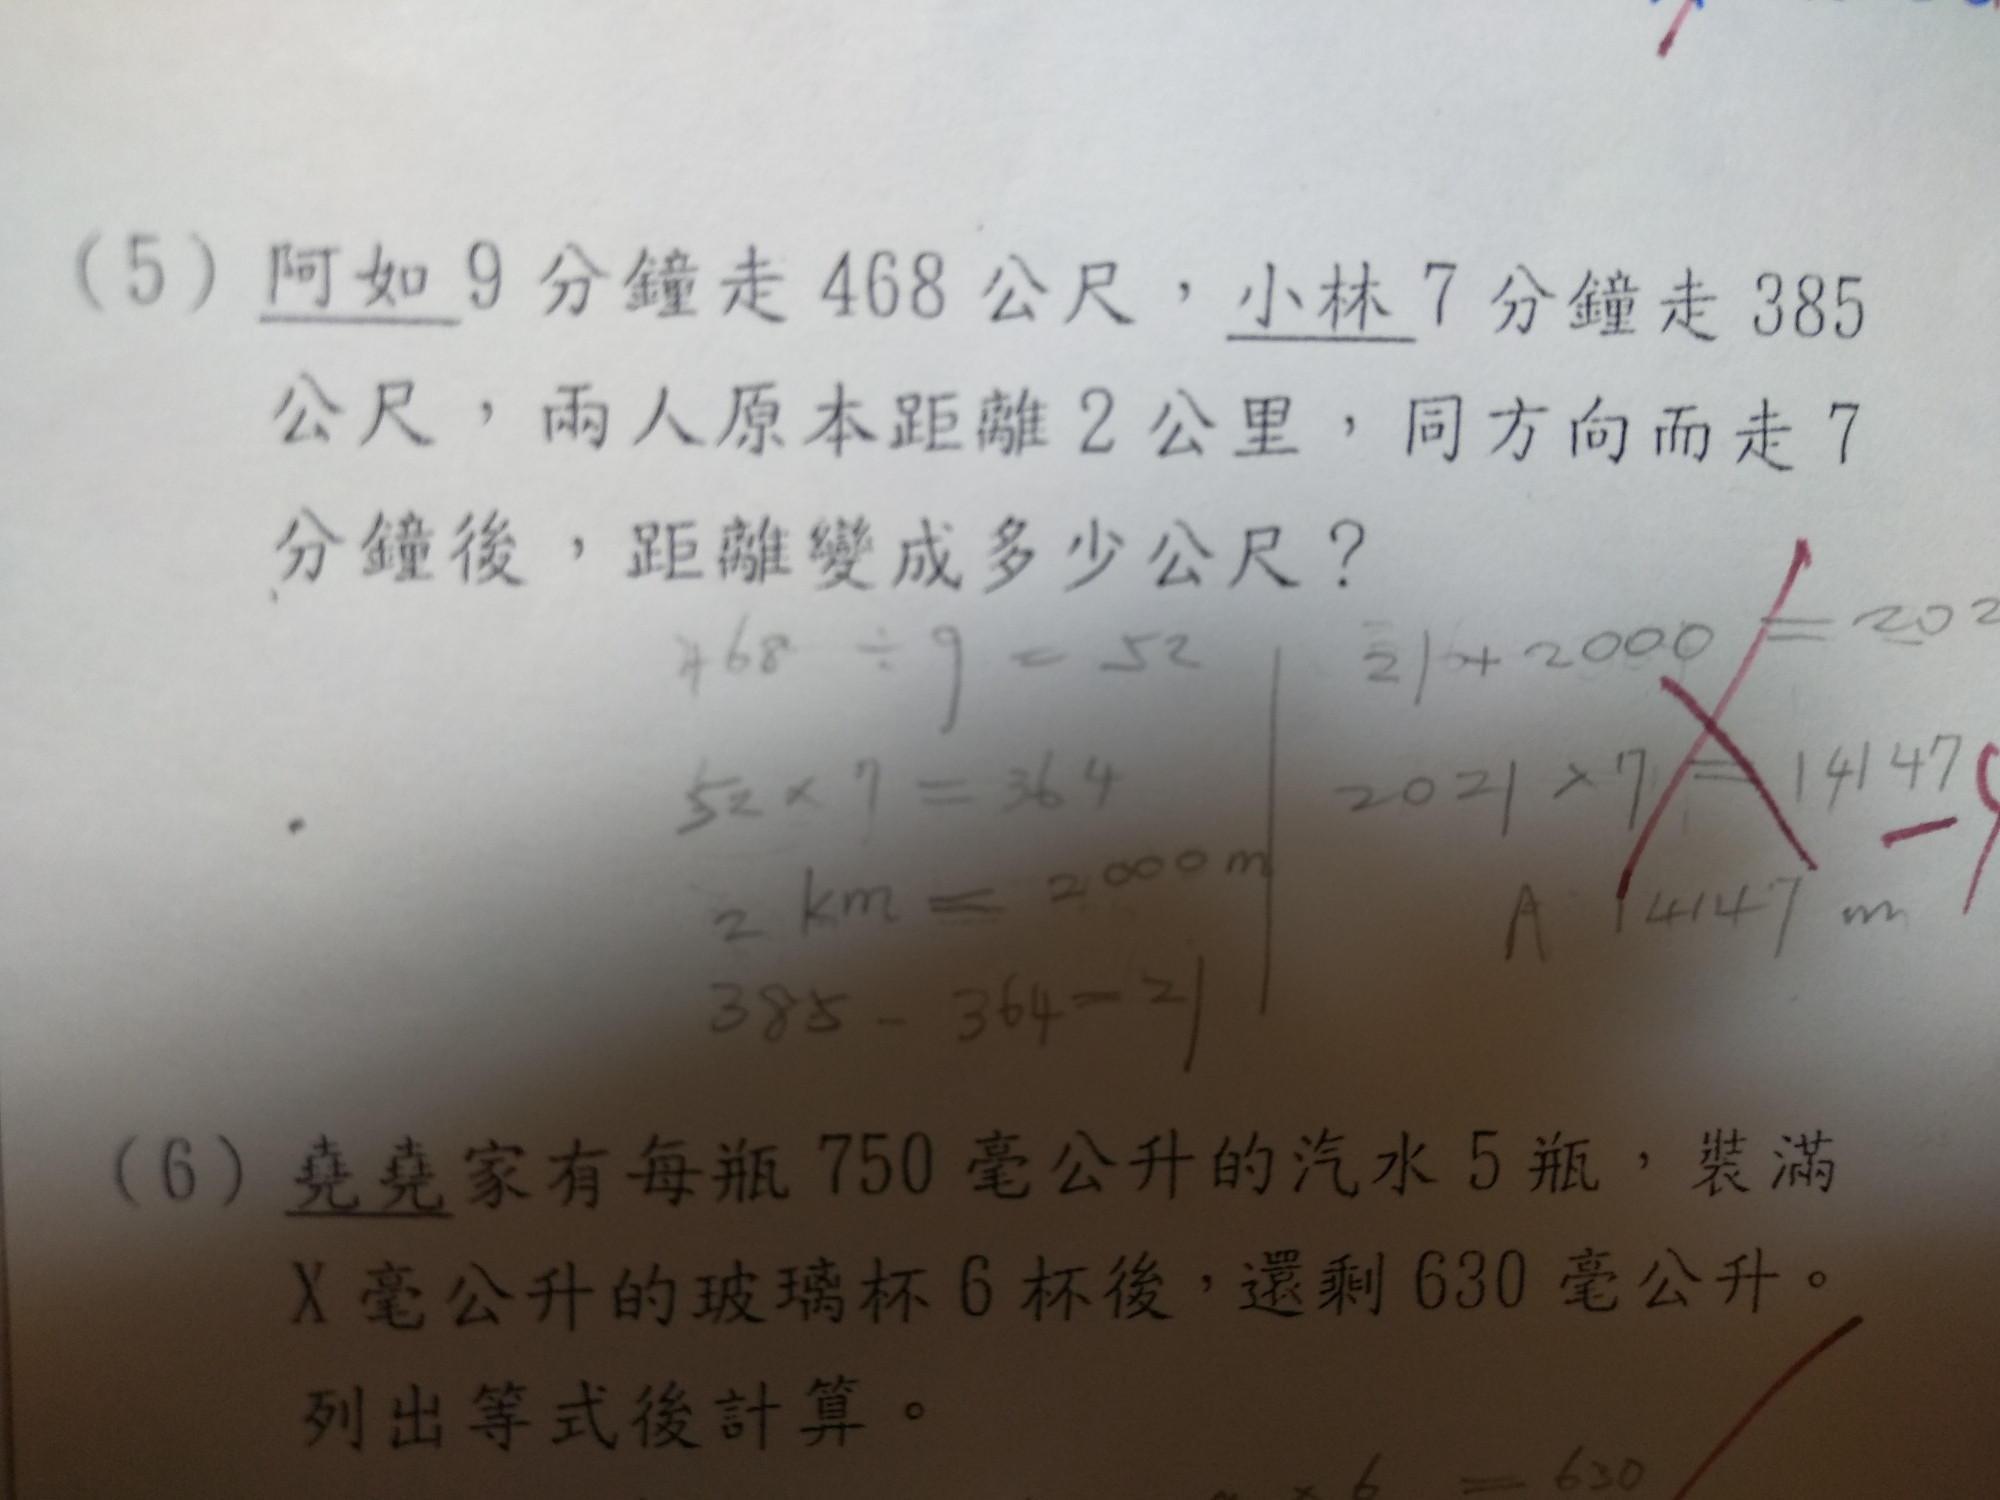 (5) 阿如9分鐘走468公尺，小林7分鐘走385
公尺，兩人原本距離2公里，同方向而走7
分鐘後，距離變成多少公尺？
468 ÷ 9 = 52
52 × 7 = 364
2 km = 2000 m
385 - 364 = 21
21 + 2000 = 202
2021 × 7 = 14147
A 14147 m
(6) 堯堯家有每瓶750毫公升的汽水5瓶，裝滿
X毫公升的玻璃杯6杯後，還剩630毫公升。
列出等式後計算。
× 6 = 630